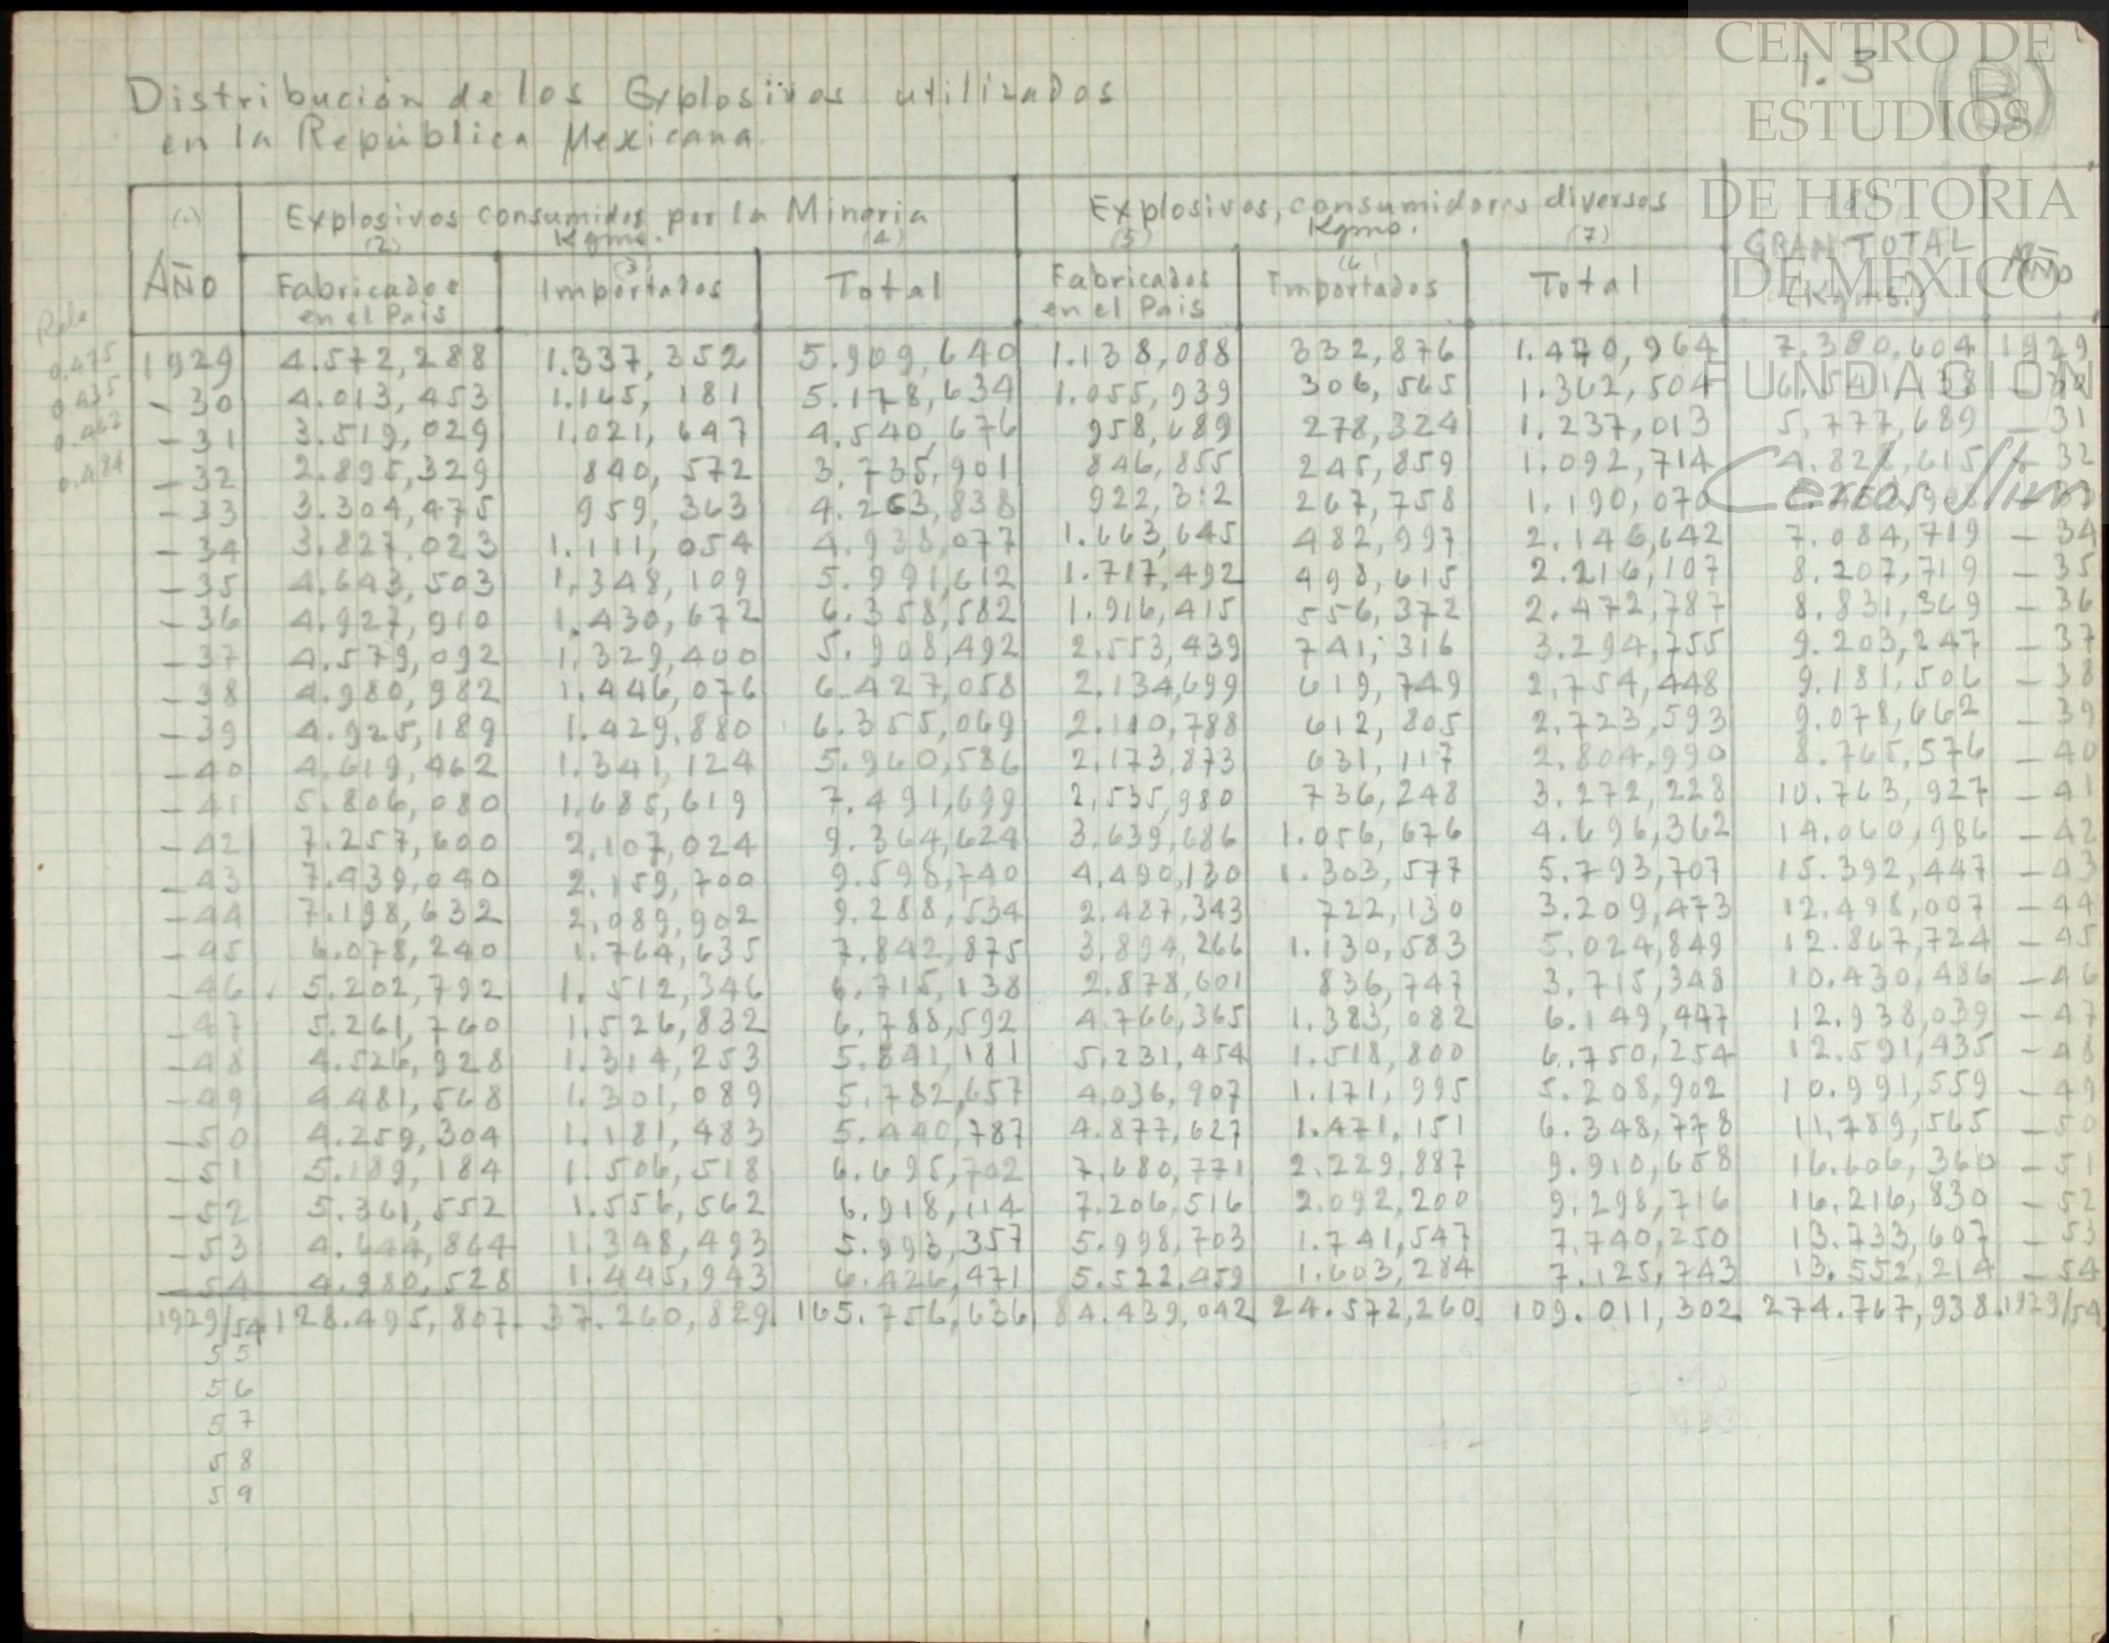 CENTRO DE
ESTUDIOS
DE HISTORIA
DE MEXICO
FUNDACION
Carlos Slim
1.3 (B)
Distribución de los Explosivos utilizados
en la República Mexicana.
(1) Explosivos consumidos por la Mineria Explosivos, consumidores diversos (8)
(2) Kgms. (4) (5) Kgms. (7) GRAN TOTAL
AÑO Fabricados (3) Importados Total Fabricados (6) Importados Total (Kgms.) AÑO
en el Pais en el Pais
0.475 1929 4.572,288 1.337,352 5.909,640 1.138,088 332,876 1.470,964 7.380,604 1929
0.435 -30 4.013,453 1.165,181 5.178,634 1.055,939 306,565 1.362,504 6.541,138 -30
0.462 -31 3.519,029 1.021,647 4.540,676 958,689 278,324 1.237,013 5.777,689 -31
0.484 -32 2.895,329 840,572 3.735,901 846,855 245,859 1.092,714 4.828,615 -32
-33 3.304,475 959,363 4.263,838 922,312 267,758 1.190,070 -33
-34 3.827,023 1.111,054 4.938,077 1.663,645 482,997 2.146,642 7.084,719 -34
-35 4.643,503 1.348,109 5.991,612 1.717,492 498,615 2.216,107 8.207,719 -35
-36 4.927,910 1.430,672 6.358,582 1.916,415 556,372 2.472,787 8.831,369 -36
-37 4.579,092 1.329,400 5.908,492 2.553,439 741,316 3.294,755 9.203,247 -37
-38 4.980,982 1.446,076 6.427,058 2.134,699 619,749 2.754,448 9.181,506 -38
-39 4.925,189 1.429,880 6.355,069 2.110,788 612,805 2.723,593 9.078,662 -39
-40 4.619,462 1.341,124 5.960,586 2.173,873 631,117 2.804,990 8.765,576 -40
-41 5.806,080 1.685,619 7.491,699 2.535,980 736,248 3.272,228 10.763,927 -41
-42 7.257,600 2.107,024 9.364,624 3.639,686 1.056,676 4.696,362 14.060,986 -42
-43 7.439,040 2.159,700 9.598,740 4.490,130 1.303,577 5.793,707 15.392,447 -43
-44 7.198,632 2.089,902 9.288,534 2.487,343 722,130 3.209,473 12.498,007 -44
-45 6.078,240 1.764,635 7.842,875 3.894,266 1.130,583 5.024,849 12.867,724 -45
-46 5.202,792 1.512,346 6.715,138 2.878,601 836,747 3.715,348 10.430,486 -46
-47 5.261,760 1.526,832 6.788,592 4.766,365 1.383,082 6.149,447 12.938,039 -47
-48 4.526,928 1.314,253 5.841,181 5.231,454 1.518,800 6.750,254 12.591,435 -48
-49 4.481,568 1.301,089 5.782,657 4.036,907 1.171,995 5.208,902 10.991,559 -49
-50 4.259,304 1.181,483 5.440,787 4.877,627 1.471,151 6.348,778 11.789,565 -50
-51 5.189,184 1.506,518 6.695,702 7.680,771 2.229,887 9.910,658 16.606,360 -51
-52 5.361,552 1.556,562 6.918,114 7.206,516 2.092,200 9.298,716 16.216,830 -52
-53 4.644,864 1.348,493 5.993,357 5.998,703 1.741,547 7.740,250 13.733,607 -53
-54 4.980,528 1.445,943 6.426,471 5.522,459 1.603,284 7.125,743 13.552,214 -54
1929/54 128.495,807 37.260,829 165.756,636 84.439,042 24.572,260 109.011,302 274.767,938 1929/54
55
56
57
58
59